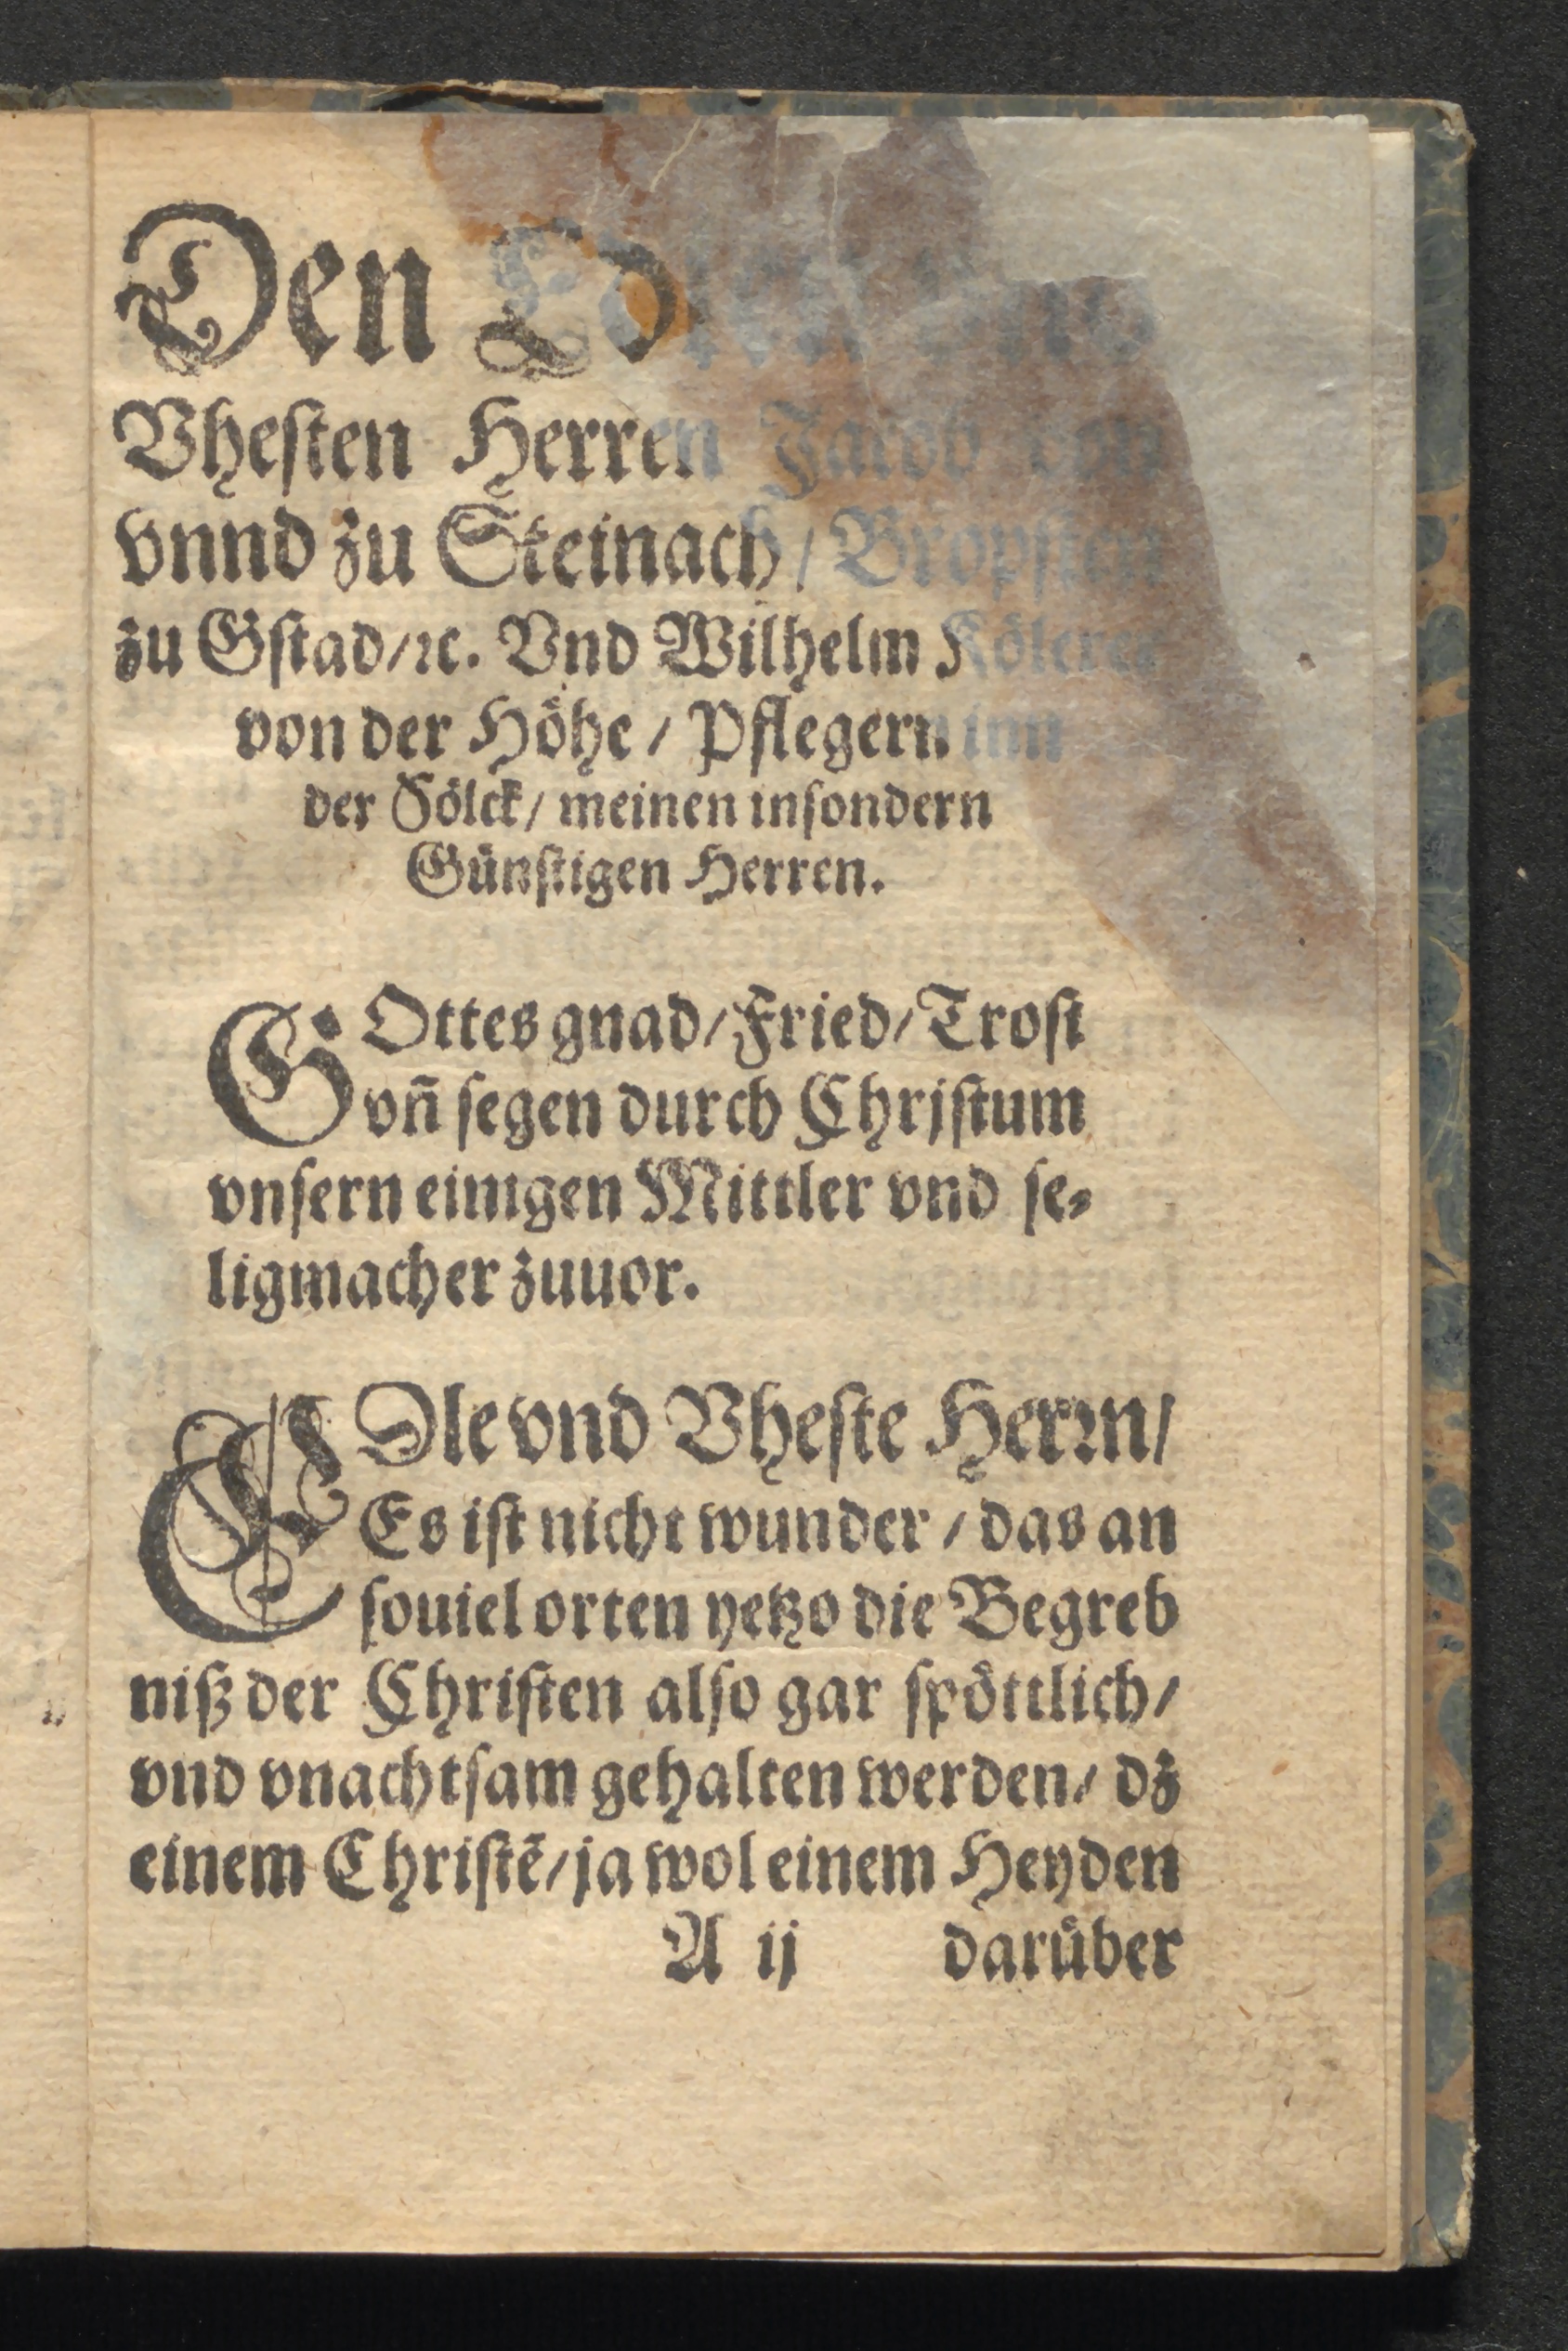 Den Edlen vnd
Vhesten Herren Jacob von
vnnd zu Steinach / Bropsten
zu Gstad / ꝛc. Vnd Wilhelm Kölerer
von der Höhe / Pflegern inn
der Sölck / meinen insondern
Günstigen Herren.
GOttes gnad / Fried / Trost
vñ segen durch Christum
vnsern einigen Mittler vnd se⸗
ligmacher zuuor.
EDle vnd Vheste Herꝛn /
Es ist nicht wunder / das an
souiel orten yetzo die Begreb
niß der Christen also gar spöttlich /
vnd vnachtsam gehalten werden / dz
einem Christẽ / ja wol einem Heyden
A ij darüber